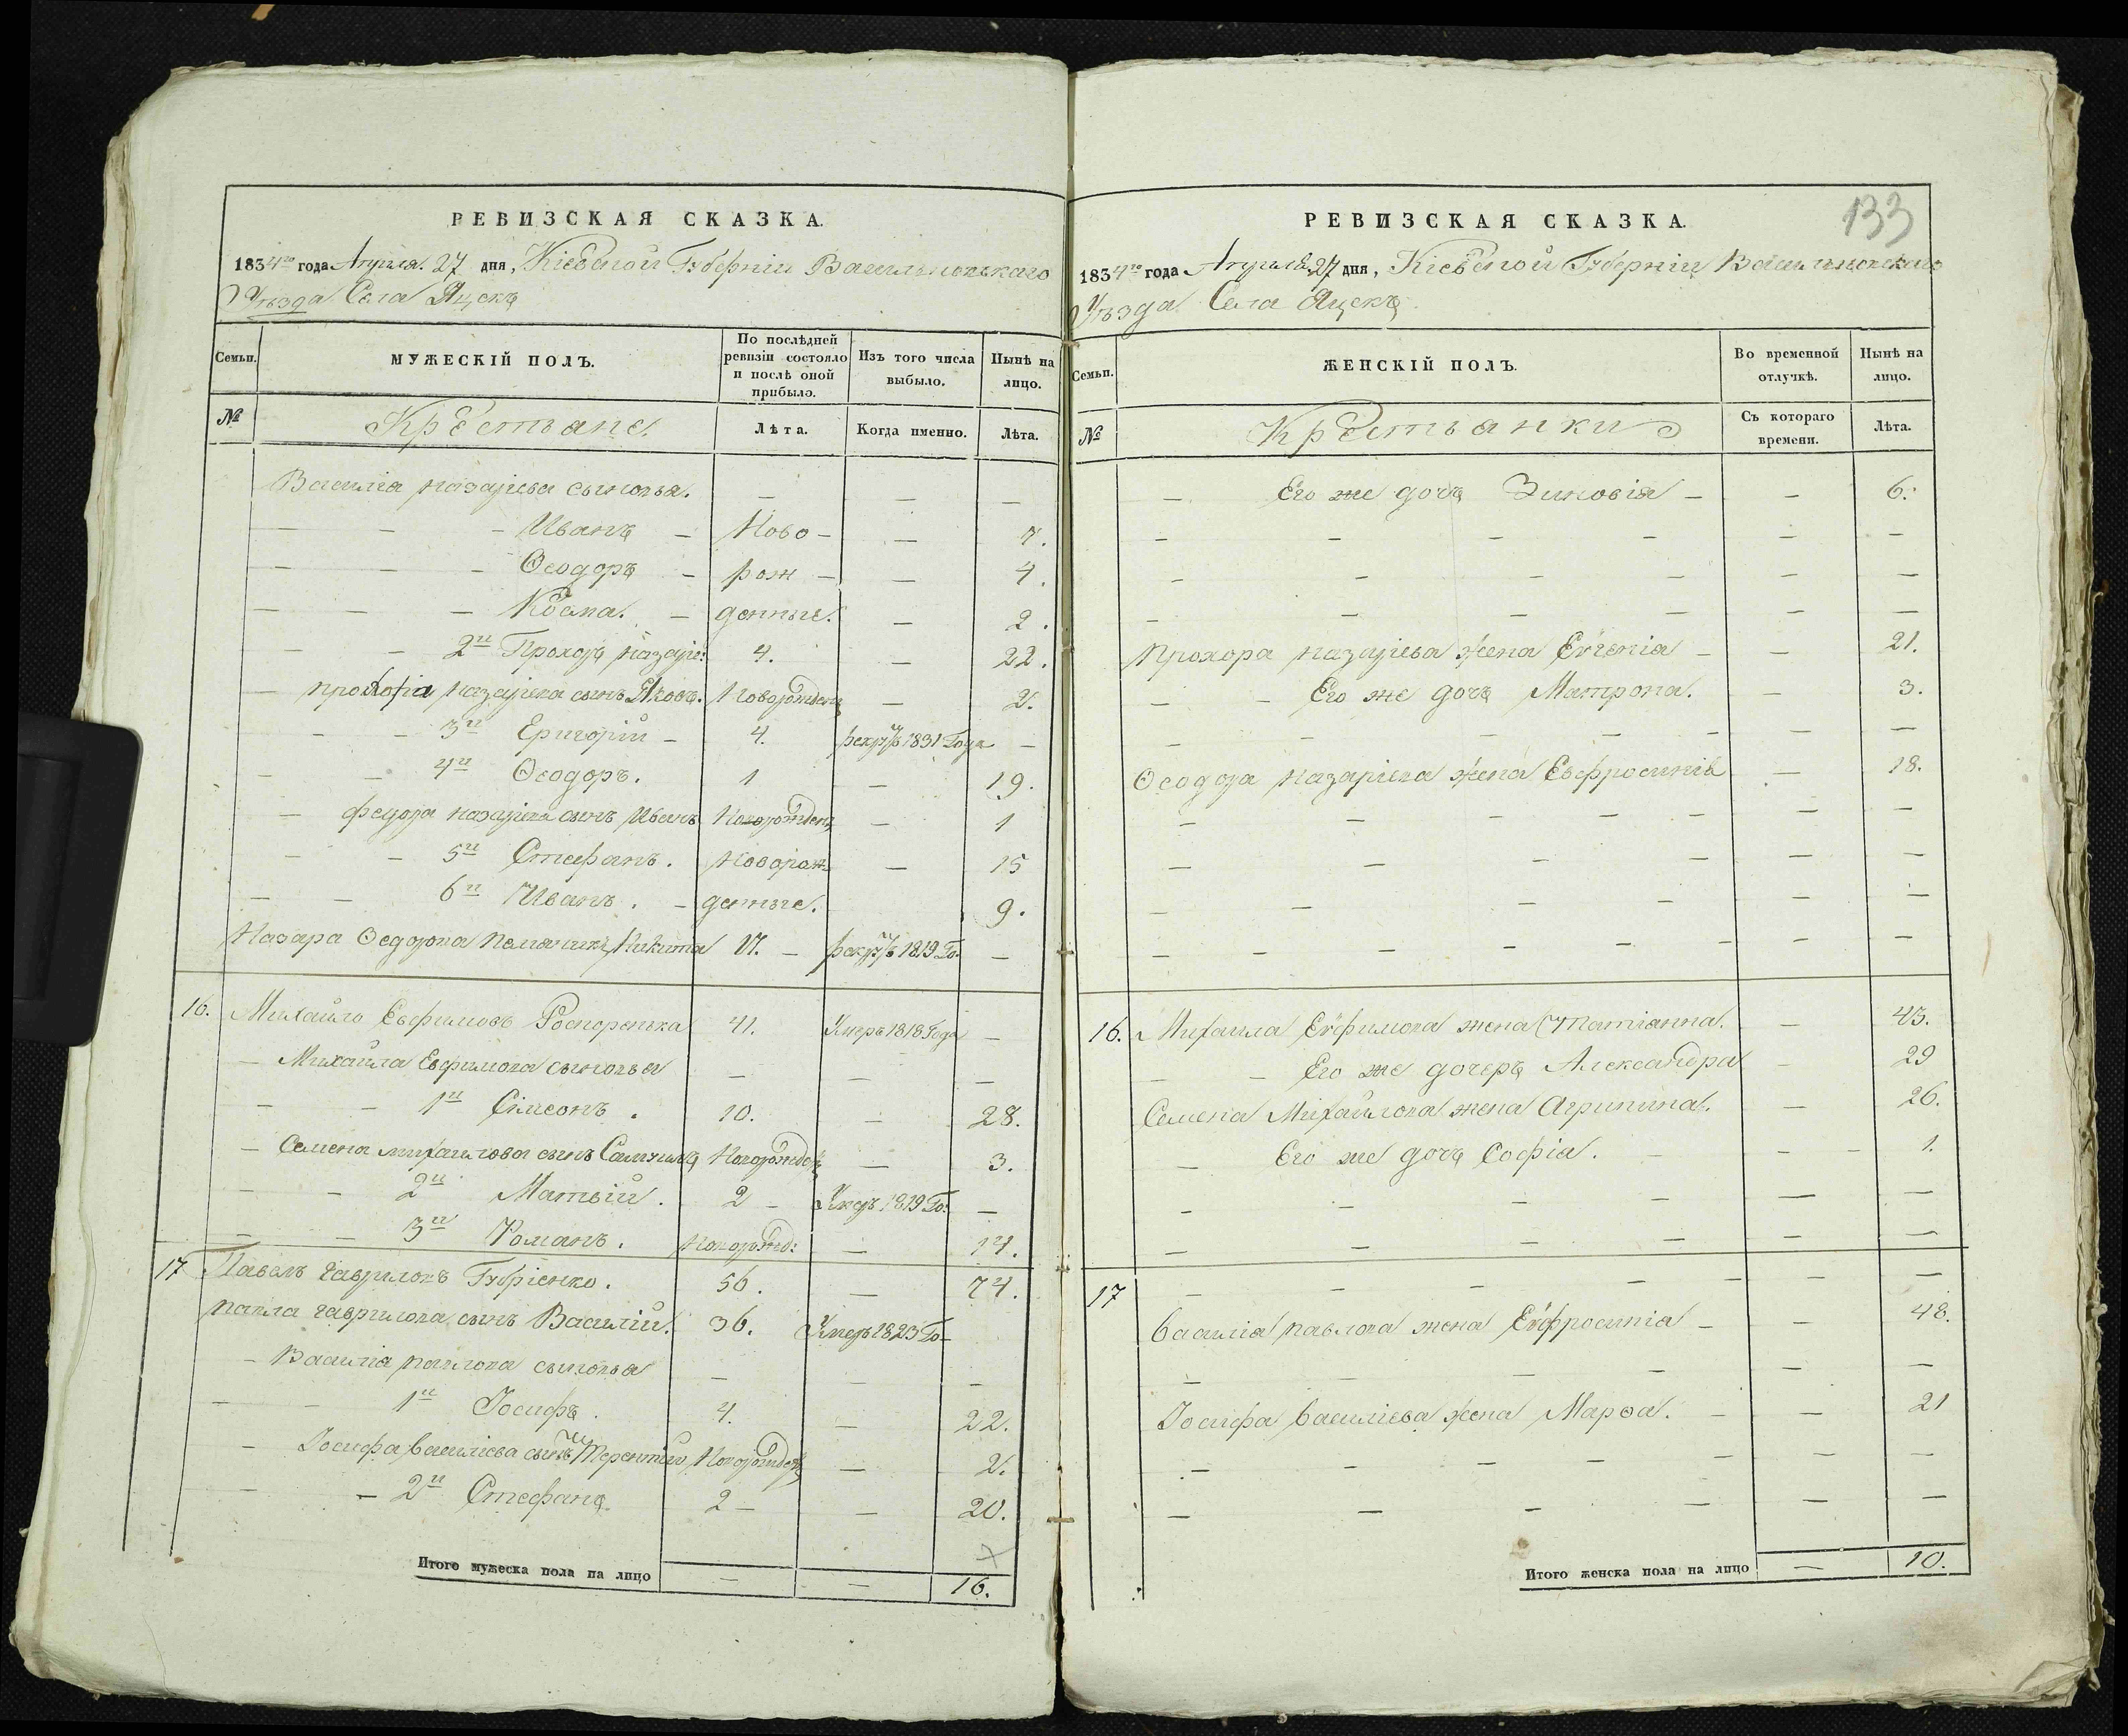 РЕВИЗСКАЯ СКАЗКА.
1834го года Апреля 27 дня, Кіевской Губерніи Васильковскаго
Уѣзда Села Яцекъ
Семьи. МУЖЕСКІЙ ПОЛЪ. По послѣдней ревизіи состояло и послѣ оной прибыло. Изъ того числа выбыло. Нынѣ на лицо.
№ Крестьане. Лѣта. Когда именно. Лѣта.
Василіа назаріева сыновья. — — —
— — — Иванъ — Ново — — 7.
— — — Ѳеодоръ — рож — — 4.
— — — Косма. — денные. — 2.
— — 2й Прохоръ назаріе: 4. — 22.
— прокофіа назаріева сынъ Яковъ. Новорожденъ — 2.
— — 3й Григорій — 4. рекрутъ 1831 Года —
— — 4й Ѳеодоръ. 1 — 19.
— федора назаріева сынъ Иванъ Новорожденъ — 1
— — 5й Стефанъ. Новорож — 15
— — 6й Иванъ. — денные. 9.
Назара Ѳедорова племянникъ Никита 17. — рекрутъ 1819 Го. —
16. Михайло Евфимовъ Роспоренька 41. Умеръ 1818 Года —
— Михайла Евфимова сыновья — — —
— — 1й Сімеонъ. 10. — 28.
— Семена михаилова сынъ Самуилъ Новорожденъ — 3.
— — 2й Матвій. 2 — Умеръ 1819 Го: —
— — 3й Романъ. Новорожд: — 14.
17 Павелъ гавриловъ Губріенко. 56. — 74.
павла гаврилова сынъ Василій. 36. Умеръ 1823 Го —
— Василіа павлова сыновья — — —
— — 1й Іосифъ. 4. — 22.
— Іосифа василіева сынъ Терентій Новорожденъ — 2.
— — 2й Стефанъ. 2 — — 20.
Итого мужеска пола на лицо — — 16.
133
РЕВИЗСКАЯ СКАЗКА.
1834го года Апреля 27 дня, Кіевской Губерніи Васильковскаго
Уѣзда Села Яцекъ
Семьи. ЖЕНСКІЙ ПОЛЪ. Во временной отлучкѣ. Нынѣ на лицо.
№ Крестьанки Съ котораго времени. Лѣта.
— Его же дочъ Зиновіа — — 6.
— — — — — —
— — — — — —
— — — — — —
Прохора назаріева жена Евгеніа — — 21.
— — Его же дочъ Матрона. — 3.
— — — — — —
Ѳеодора назаріева жена Евфросиніа — 18.
— — — — — —
— — — — — —
— — — — — —
— — — — — — —
16. Михаила Евфимова жена Татіанна. — 45.
— — Его же дочеръ Александра — 29
Семена Михайлова жена Агрипина. — 26.
— Его же дочъ Софіа. — — — 1.
— — — — — —
— — — — — —
17 — — — — — —
Василіа павлова жена Евфросиніа — — 48.
— — — — —
Іосифа василіева жена Марѳа. — — 21
— — — — — — —
— — — — — —
Итого женска пола на лицо — 10.